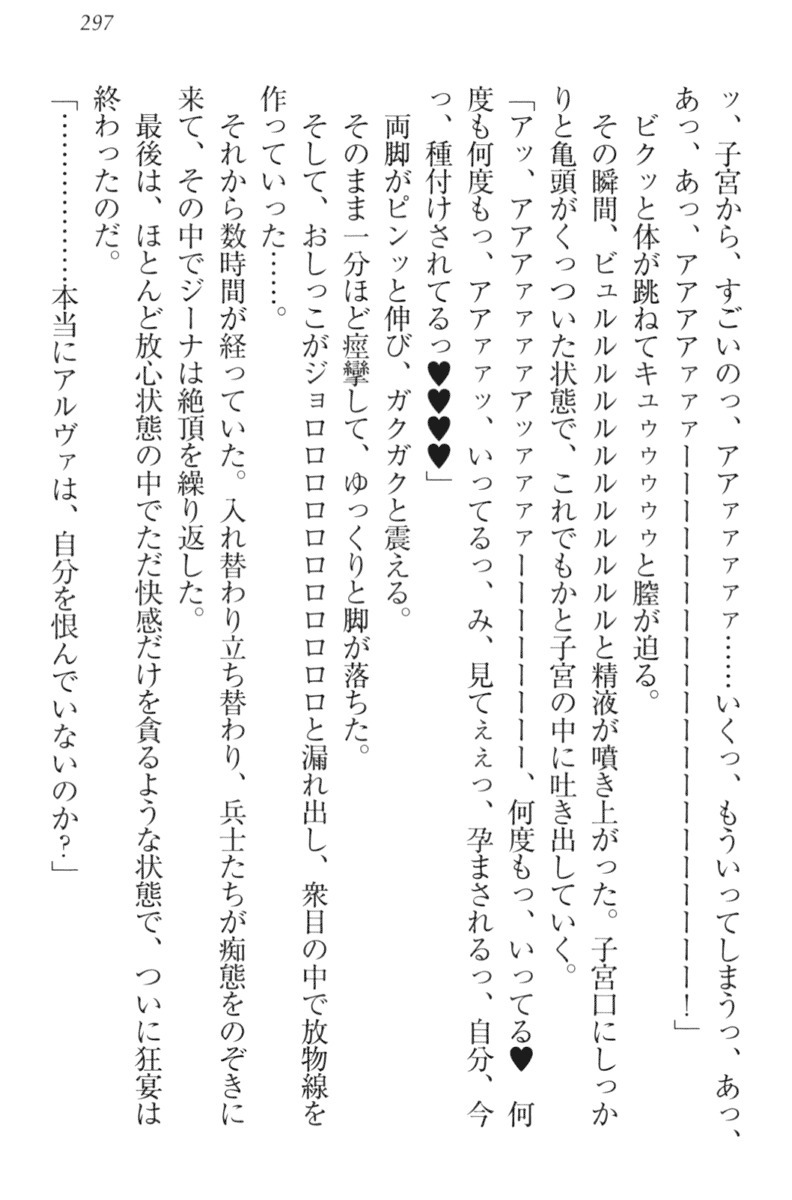 297
ッ、子宮から、すごいのっ、アアァァァァ……いくっ、もういってしまうっ、あっ、
あっ、あっ、アアアアァァァーーーーーーーーーーーーーーーーーー！」
ビクッと体が跳ねてキュゥゥゥゥゥと膣が迫る。
その瞬間、ビュルルルルルルルルルルルと精液が噴き上がった。子宮口にしっか
りと亀頭がくっついた状態で、これでもかと子宮の中に吐き出していく。
「アッ、アアアァァァァアッァァァァーーーーーーー、何度もっ、いってる♥　何
度も何度もっ、アアァァッ、いってるっ、み、見てぇぇっ、孕まされるっ、自分、今
っ、種付けされてるっ♥♥♥♥」
両脚がピンッと伸び、ガクガクと震える。
そのまま一分ほど痙攣して、ゆっくりと脚が落ちた。
そして、おしっこがジョロロロロロロロロロロと漏れ出し、衆目の中で放物線を
作っていった……。
それから数時間が経っていた。入れ替わり立ち替わり、兵士たちが痴態をのぞきに
来て、その中でジーナは絶頂を繰り返した。
最後は、ほとんど放心状態の中でただ快感だけを貪るような状態で、ついに狂宴は
終わったのだ。
「………………本当にアルヴァは、自分を恨んでいないのか？」